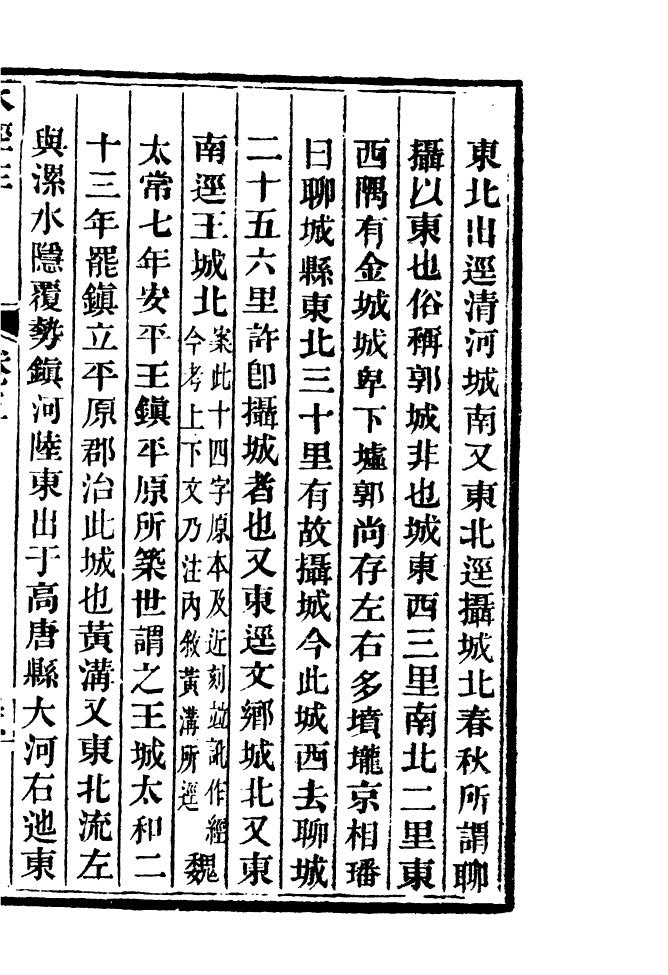 東北出逕清河城南又東北逕攝城北春秋所謂聊
攝以東也俗稱郭城非也城東西三里南北二里東
西隅有金城城卑下墟郭尚存左右多墳壠京相璠
曰聊城縣東北三十里有故攝城今此城西去聊城
二十五六里許卽攝城者也又東逕文鄉城北又東
南逕王城北案此十四字原本及近刻竝訛作經今考上下文乃注內敘黃溝所逕魏
太常七年安平王鎮平原所築世謂之王城太和二
十三年罷鎮立平原郡治此城也黃溝又東北流左
與漯水隱覆勢鎮河陸東出于高唐縣大河右迆東
水經注
卷五